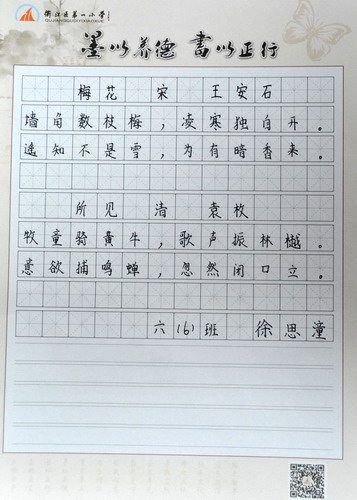 衢江区第一小学
墨以养德 书以正行
梅花 宋 王安石
墙角数枝梅，凌寒独自开。
遥知不是雪，为有暗香来。
所见 清 袁枚
牧童骑黄牛，歌声振林樾。
意欲捕鸣蝉，忽然闭口立。
六（6）班 徐思潼